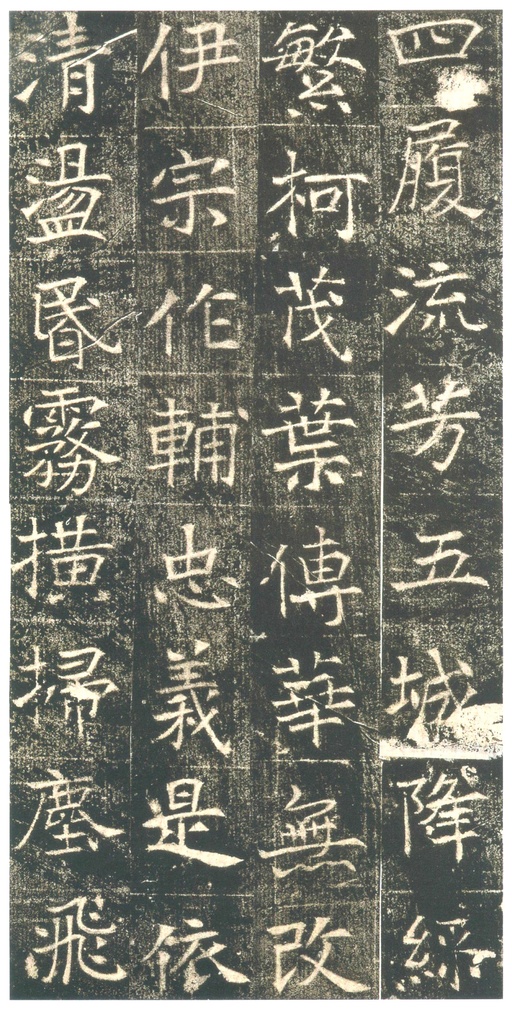 四履流芳五城降綵
繁柯茂葉傅華無改
伊宗作輔忠義是依
清盪昬霧橫掃塵飛